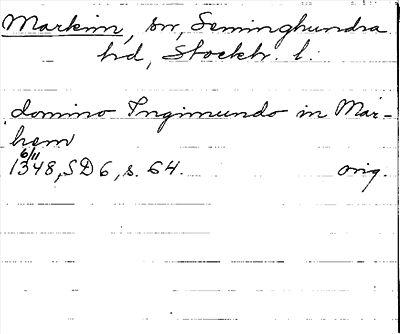 Markim, sn, Seminghundra
hd, Stockh. l.
domino Ingimundo in Mar-
hem
6/11
1348, SD 6, s. 64. orig.